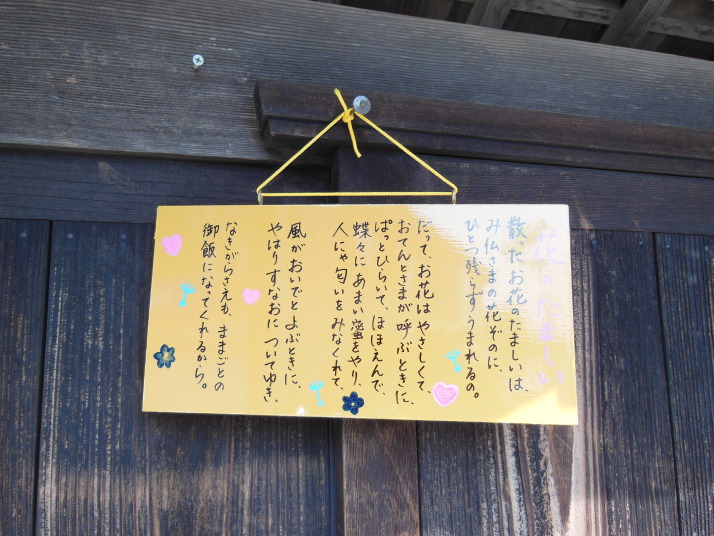 花のたましい
散ったお花のたましいは、
み仏さまの花ぞのに、
ひとつ残らずうまれるの。
だって、お花はやさしくて、
おてんとさまが呼ぶときに、
ぱっとひらいて、ほほえんで、
蝶々にあまい蜜をやり、
人にゃ匂いをみなくれて、
風がおいでとよぶときに、
やはりすなおについてゆき、
なきがらさえも、ままごとの
御飯になってくれるから。